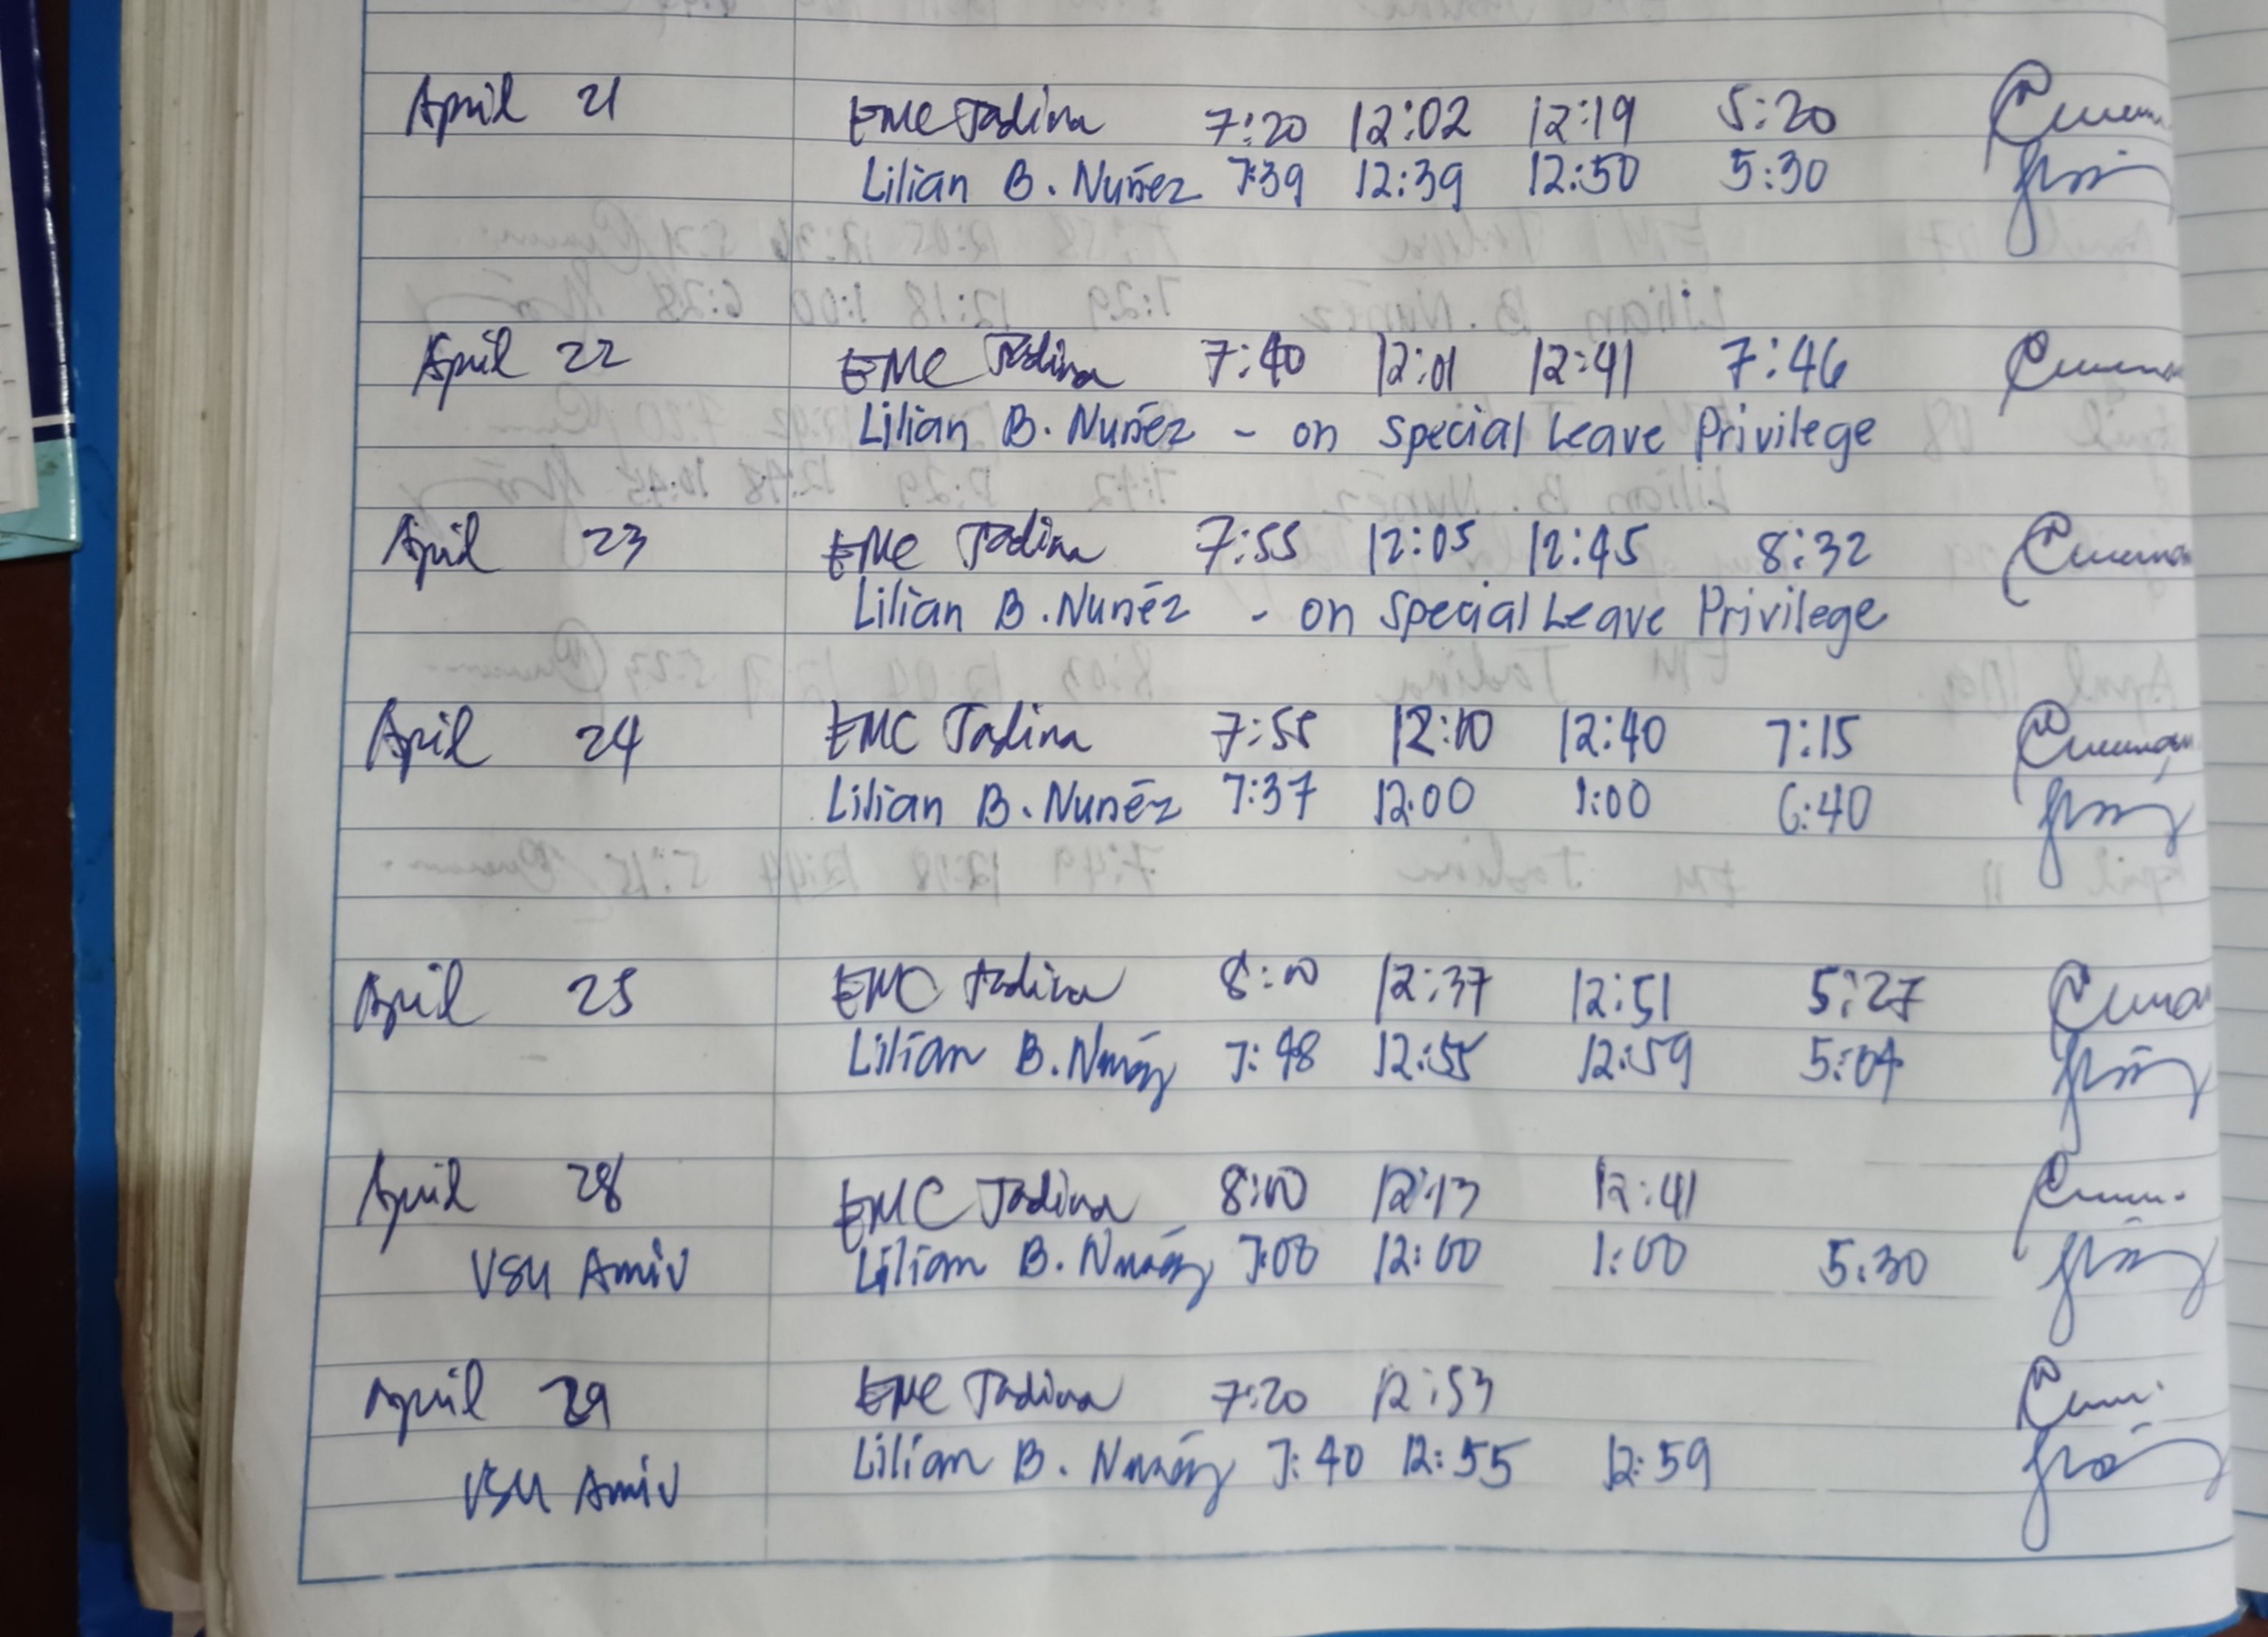 April 21 EMC Tadina 7:20 12:02 12:19 5:20
Lilian B. Nuñez 7:39 12:39 12:50 5:30
April 22 EMC Tadina 7:40 12:01 12:41 7:46
Lilian B. Nuñez - on Special Leave Privilege
April 23 EMC Tadina 7:55 12:05 12:45 8:32
Lilian B. Nuñez - on Special Leave Privilege
April 24 EMC Tadina 7:55 12:10 12:40 7:15
Lilian B. Nuñez 7:37 12:00 1:00 6:40
April 25 EMC Tadina 8:00 12:37 12:51 5:27
Lilian B. Nuñez 7:48 12:55 12:59 5:04
April 28 EMC Tadina 8:00 12:13 12:41
VSU Anniv Lilian B. Nuñez 7:00 12:00 1:00 5:30
April 29 EMC Tadina 7:20 12:53
Lilian B. Nuñez 7:40 12:55 12:59
VSU Anniv